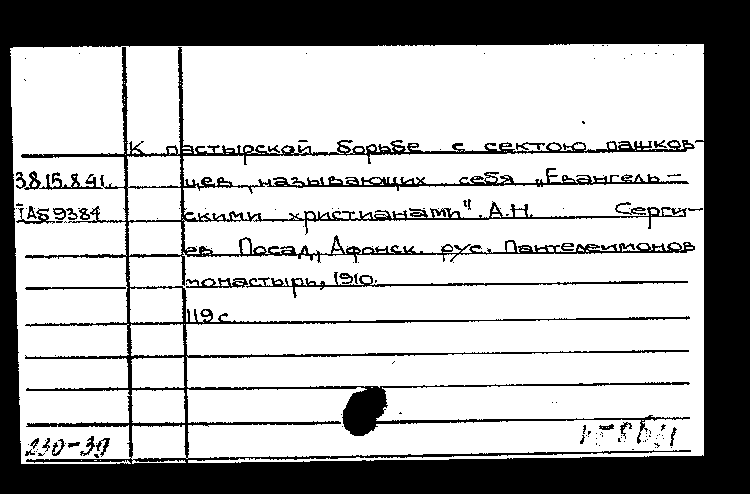 К пастырской борьбе с сектою пашков-
38.15.8.41. цев, называющих себя „Евангель-
IАБ9384 скими христианами". А.Н. Серги-
ев Посад, Афонск. рус. Пантелеимонов
монастырь, 1910.
119 с.
230-39